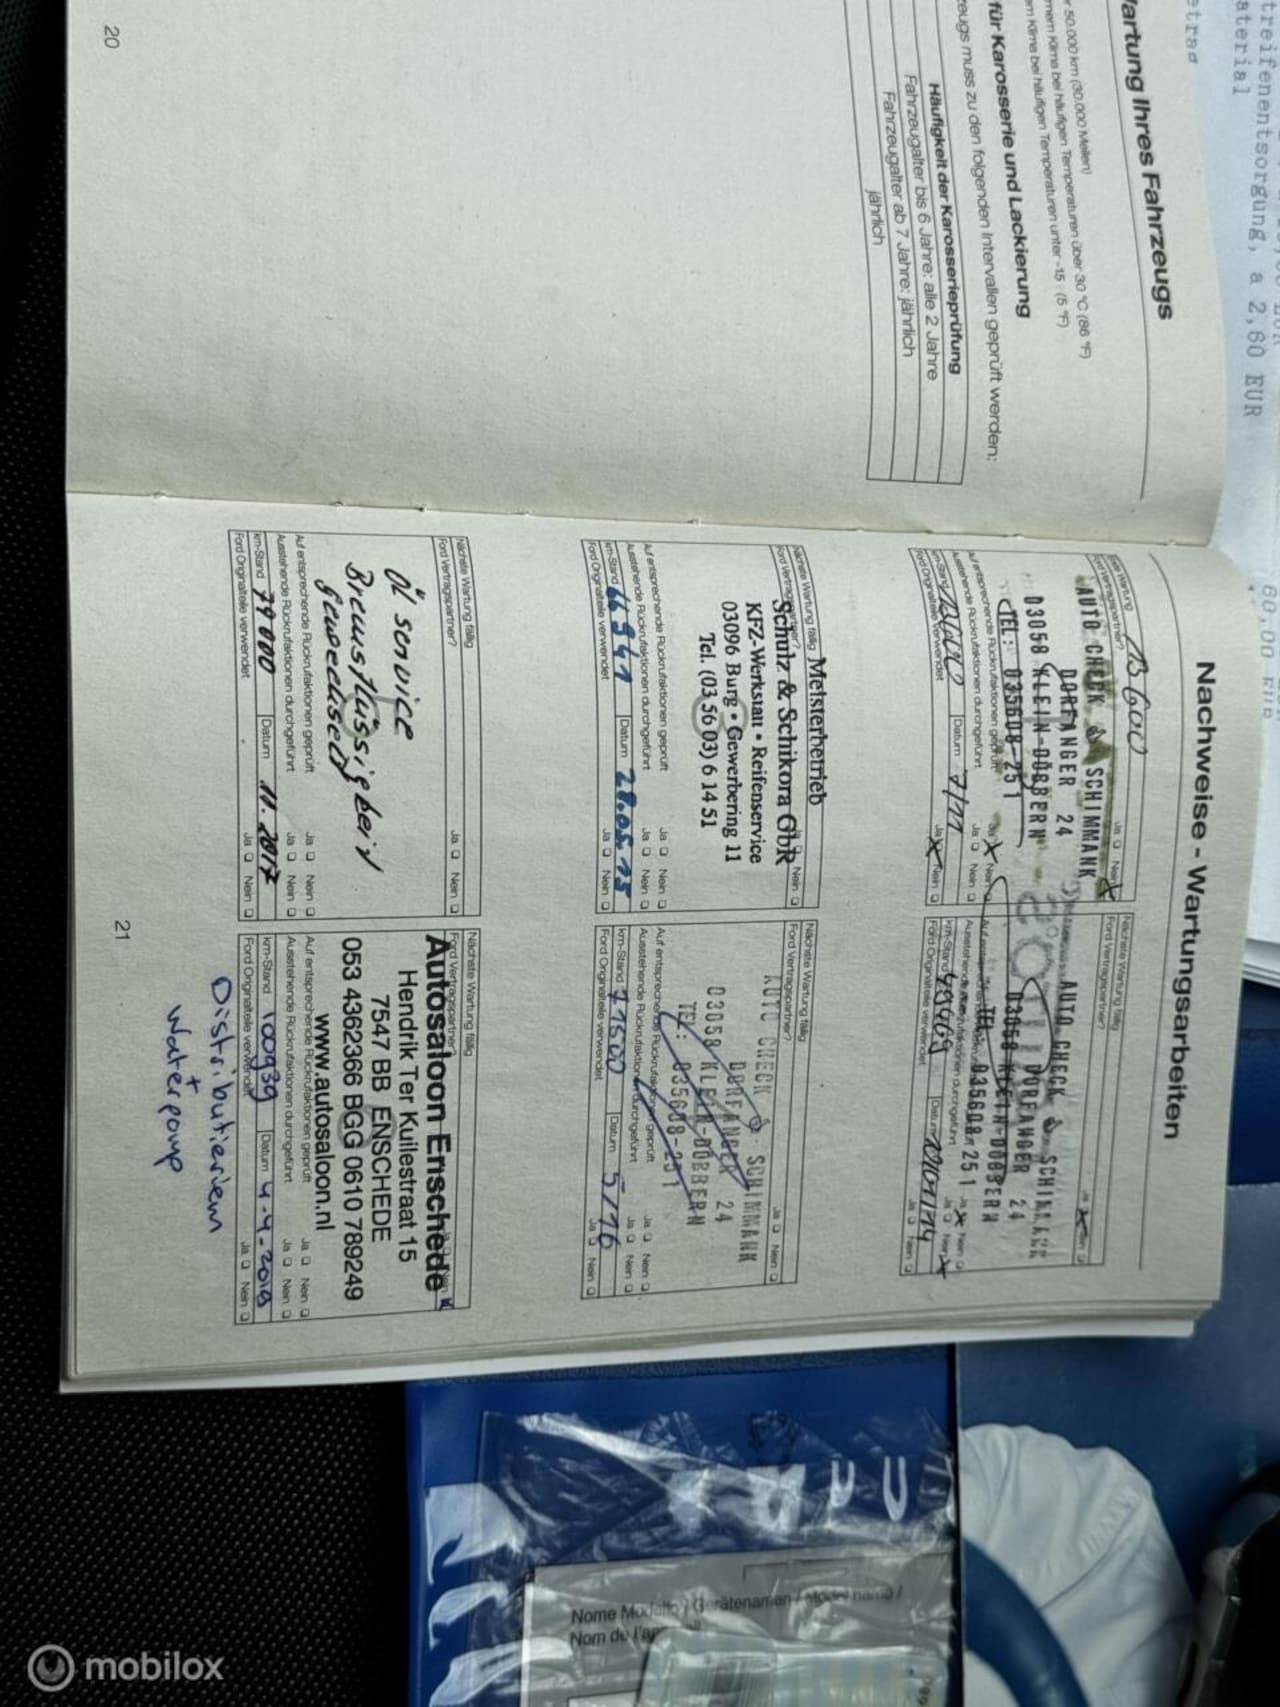 treifenentsorgung, a 2,60 EUR
aterial
Wartung Ihres Fahrzeugs
r 50.000 km (30.000 Meilen)
nem Klima bei häufigen Temperaturen über 30 °C (86 °F)
em Klima bei häufigen Temperaturen unter -15 (5 °F)
für Karosserie und Lackierung
zeugs muss zu den folgenden Intervallen geprüft werden:
Häufigkeit der Karosserieprüfung
Fahrzeugalter bis 6 Jahre: alle 2 Jahre
Fahrzeugalter ab 7 Jahre: jährlich
jährlich
20
Nachweise - Wartungsarbeiten
AUTO CHECK & SCHIMMANK
DORFANGER 24
03058 KLEIN-DÖBBERN
TEL: 035608-251
Datum 7/11
Ford Originalteile verwendet Ja Nein
Nächste Wartung fällig
Ford Vertragspartner?
AUTO CHECK & SCHIMMANK
DORFANGER 24
03058 KLEIN-DÖBBERN
TEL: 035608-251
km-Stand Datum
Ford Originalteile verwendet Ja Nein
Nächste Wartung fällig
Ford Vertragspartner? Nein
Meisterbetrieb
Schulz & Schikora GbR
KFZ-Werkstatt • Reifenservice
03096 Burg • Gewerbering 11
Tel. (03 56 03) 6 14 51
Auf entsprechende Rückrufaktionen geprüft Ja Nein
Ausstehende Rückrufaktionen durchgeführt Ja Nein
km-Stand 66941 Datum 28.05.15
Ford Originalteile verwendet Ja Nein
Nächste Wartung fällig
Ford Vertragspartner? Ja Nein
AUTO CHECK & SCHIMMANK
DORFANGER 24
03058 KLEIN-DÖBBERN
TEL: 035608-251
Auf entsprechende Rückrufaktionen geprüft Ja Nein
Ausstehende Rückrufaktionen durchgeführt Ja Nein
km-Stand 71500 Datum 5/16
Ford Originalteile verwendet Ja Nein
Nächste Wartung fällig
Ford Vertragspartner? Ja Nein
Öl service
Bremsflüssigkeit
gewechselt
Auf entsprechende Rückrufaktionen geprüft Ja Nein
Ausstehende Rückrufaktionen durchgeführt Ja Nein
km-Stand 79000 Datum 11.2017
Ford Originalteile verwendet Ja Nein
Nächste Wartung fällig
Ford Vertragspartner?
Autosaloon Enschede
Hendrik Ter Kuilestraat 15
7547 BB ENSCHEDE
053 4362366 BGG 0610 789249
www.autosaloon.nl
Auf entsprechende Rückrufaktionen geprüft Ja Nein
Ausstehende Rückrufaktionen durchgeführt Ja Nein
km-Stand 100939 Datum 4-4-2019
Ford Originalteile verwendet Ja Nein
Distributieriem
+
Waterpomp
21
Nome Modello / Gerätenamen / Model name /
mobilox